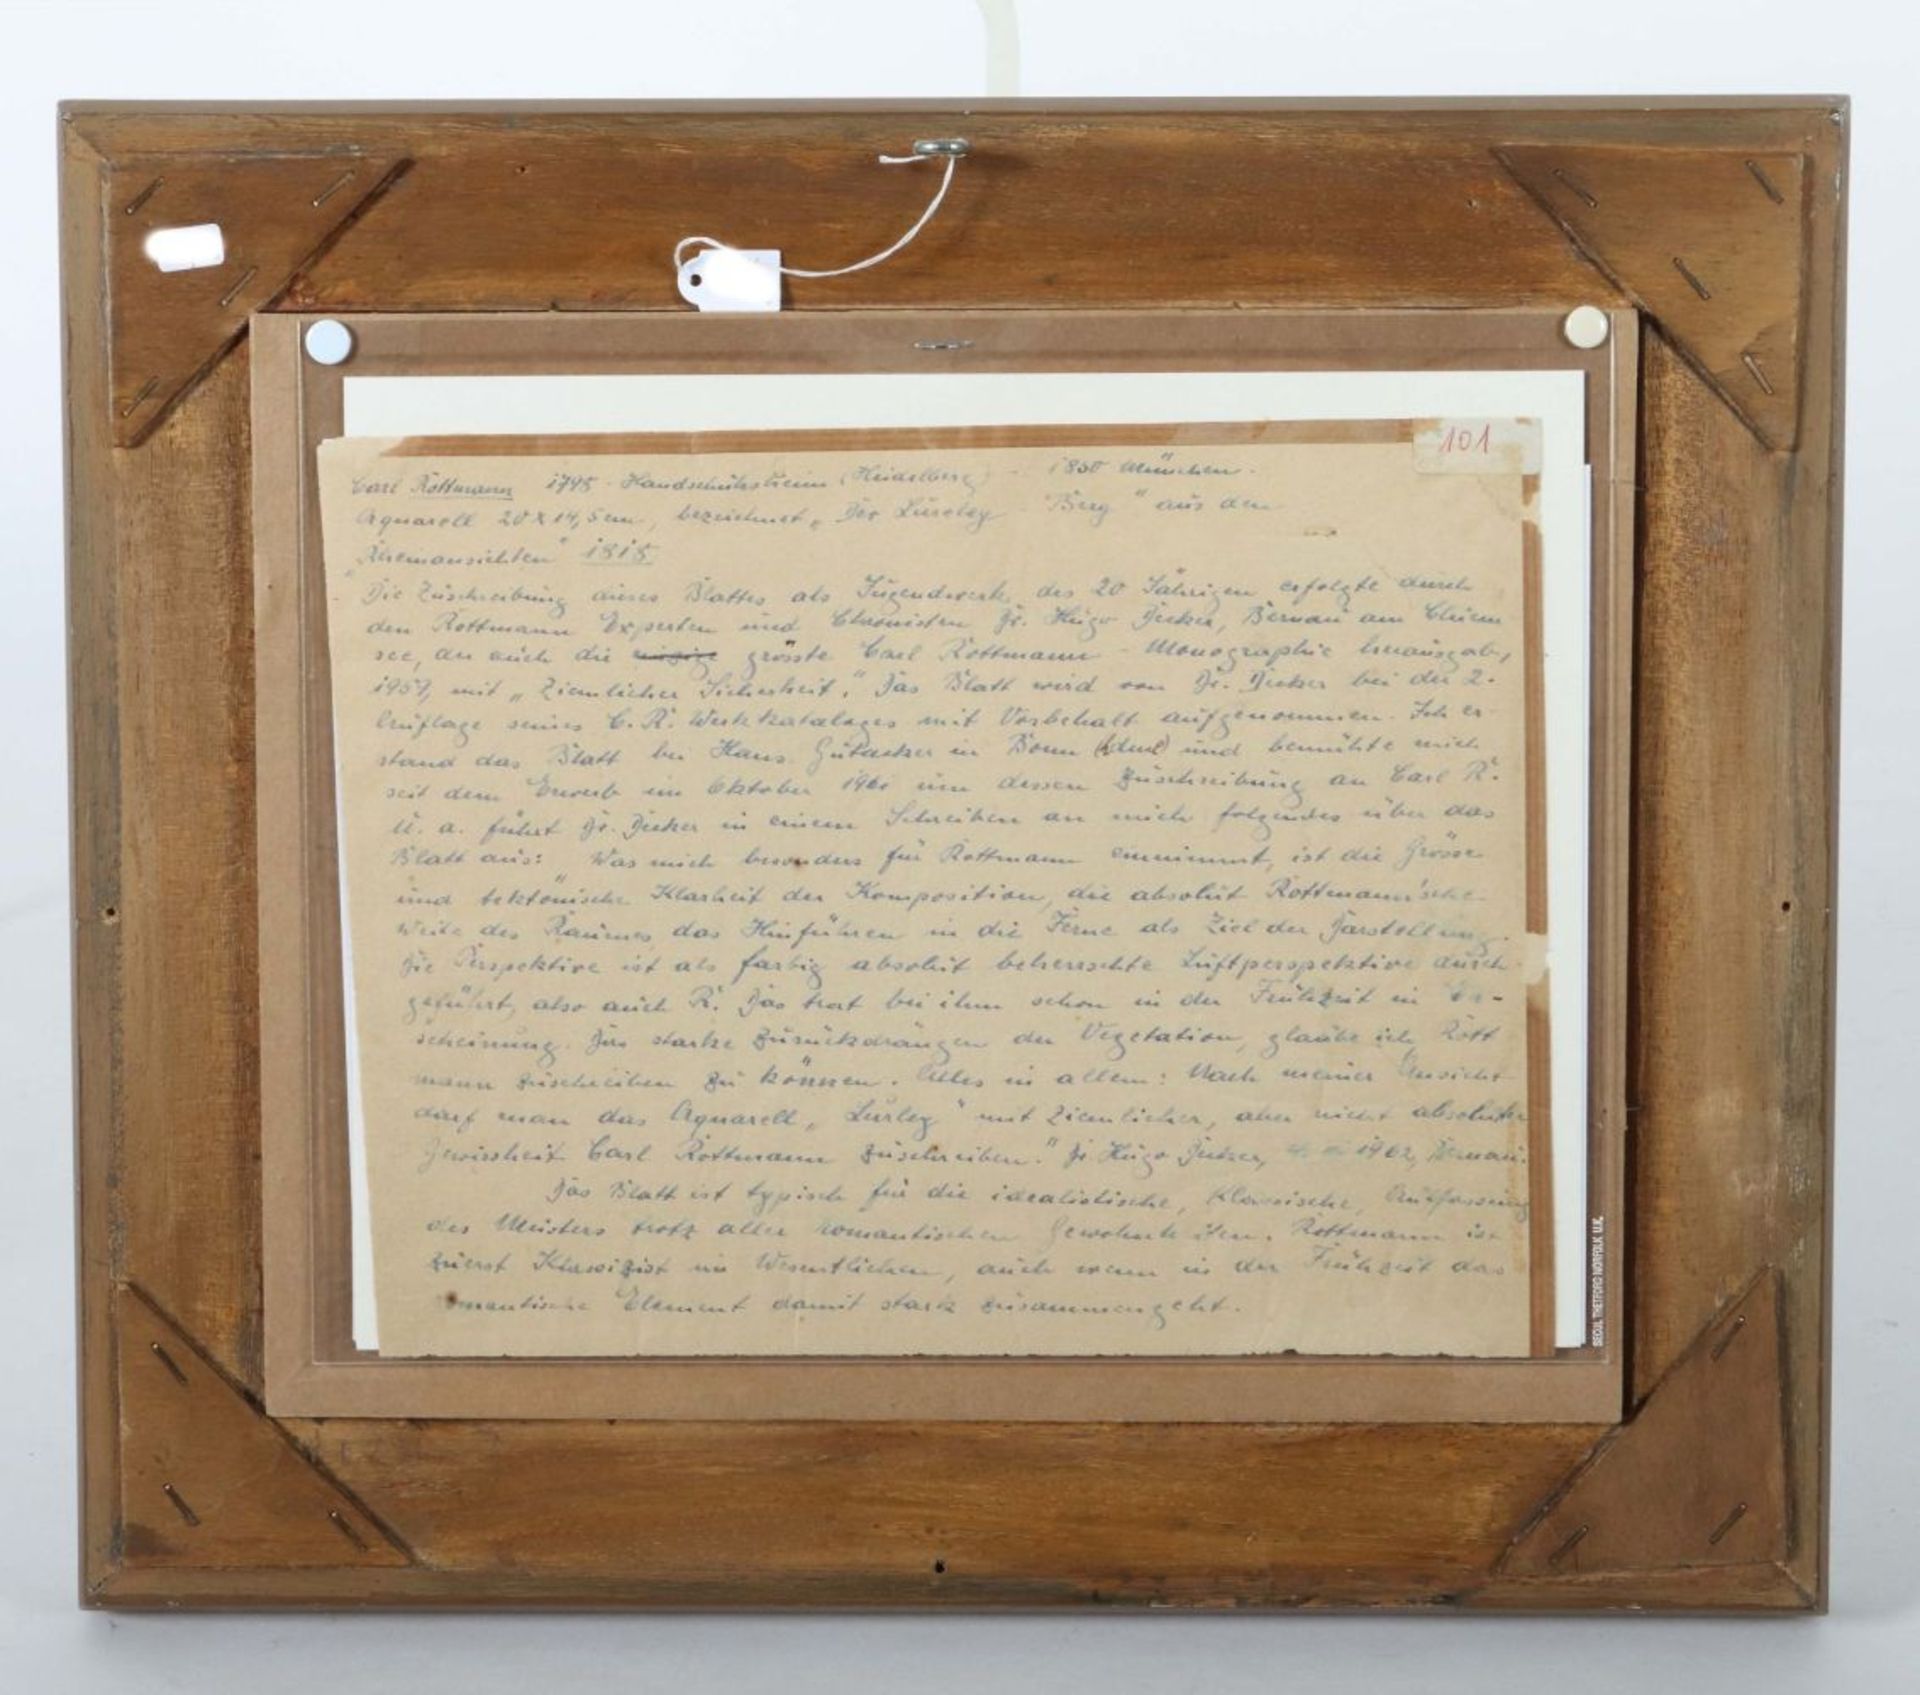 101
Carl Rottmann 1795 - Handschuhsheim (Heidelberg) - 1850 München.
Aquarell 20 x 14,5 cm, bezeichnet „Der Lureley Berg" aus den
„Rheinansichten" 1815
"Die Zuschreibung dieses Blattes als Jugendwerk des 20 Jährigen erfolgte durch
den Rottmann Experten und Chronisten Dr. Hugo Decker, Bernau am Chiem
see, der auch die grösste Carl Rottmann - Monographie herausgab,
1957, mit „Ziemlicher Sicherheit." Das Blatt wird von Dr. Decker bei der 2.
Auflage seines C. R. Werkkataloges mit Vorbehalt aufgenommen. Ich er-
stand das Blatt bei Hans in Bonn und bemühte mich
seit dem Erwerb im Oktober 1961 um dessen Zuschreibung an Carl R.
U. a. führt Dr. Decker in einem Schreiben an mich folgendes über das
Blatt aus: „Was mich besonders für Rottmann einnimmt, ist die Grösse
und tektonische Klarheit der Komposition, die absolut Rottmann'sche
Weite des Raumes das Hinführen in die Ferne als Ziel der Darstellung.
Die Perspektive ist als farbig absolut beherrschte Luftperspektive durch-
geführt, also auch R. Das trat bei ihm schon in der Frühzeit in Er-
scheinung. Das starke Zurückdrängen der Vegetation, glaube ich Rott
mann zuschreiben zu können. Alles in allem: Nach meiner Ansicht
darf man das Aquarell „Lurley" mit Ziemlicher, aber nicht absoluter
Gewissheit Carl Rottmann zuschreiben." Dr. Hugo Decker, 1962, Bernau.
Das Blatt ist typisch für die idealistische, Klassische, Auffassung
des Meisters trotz aller romantischen Gewohnheiten. Rottmann ist
zuerst Klassizist im Wesentlichen, auch wenn in der Frühzeit das
romantische Element damit stark zusammengeht.
SECOL THETFORD NORFOLK U.K.